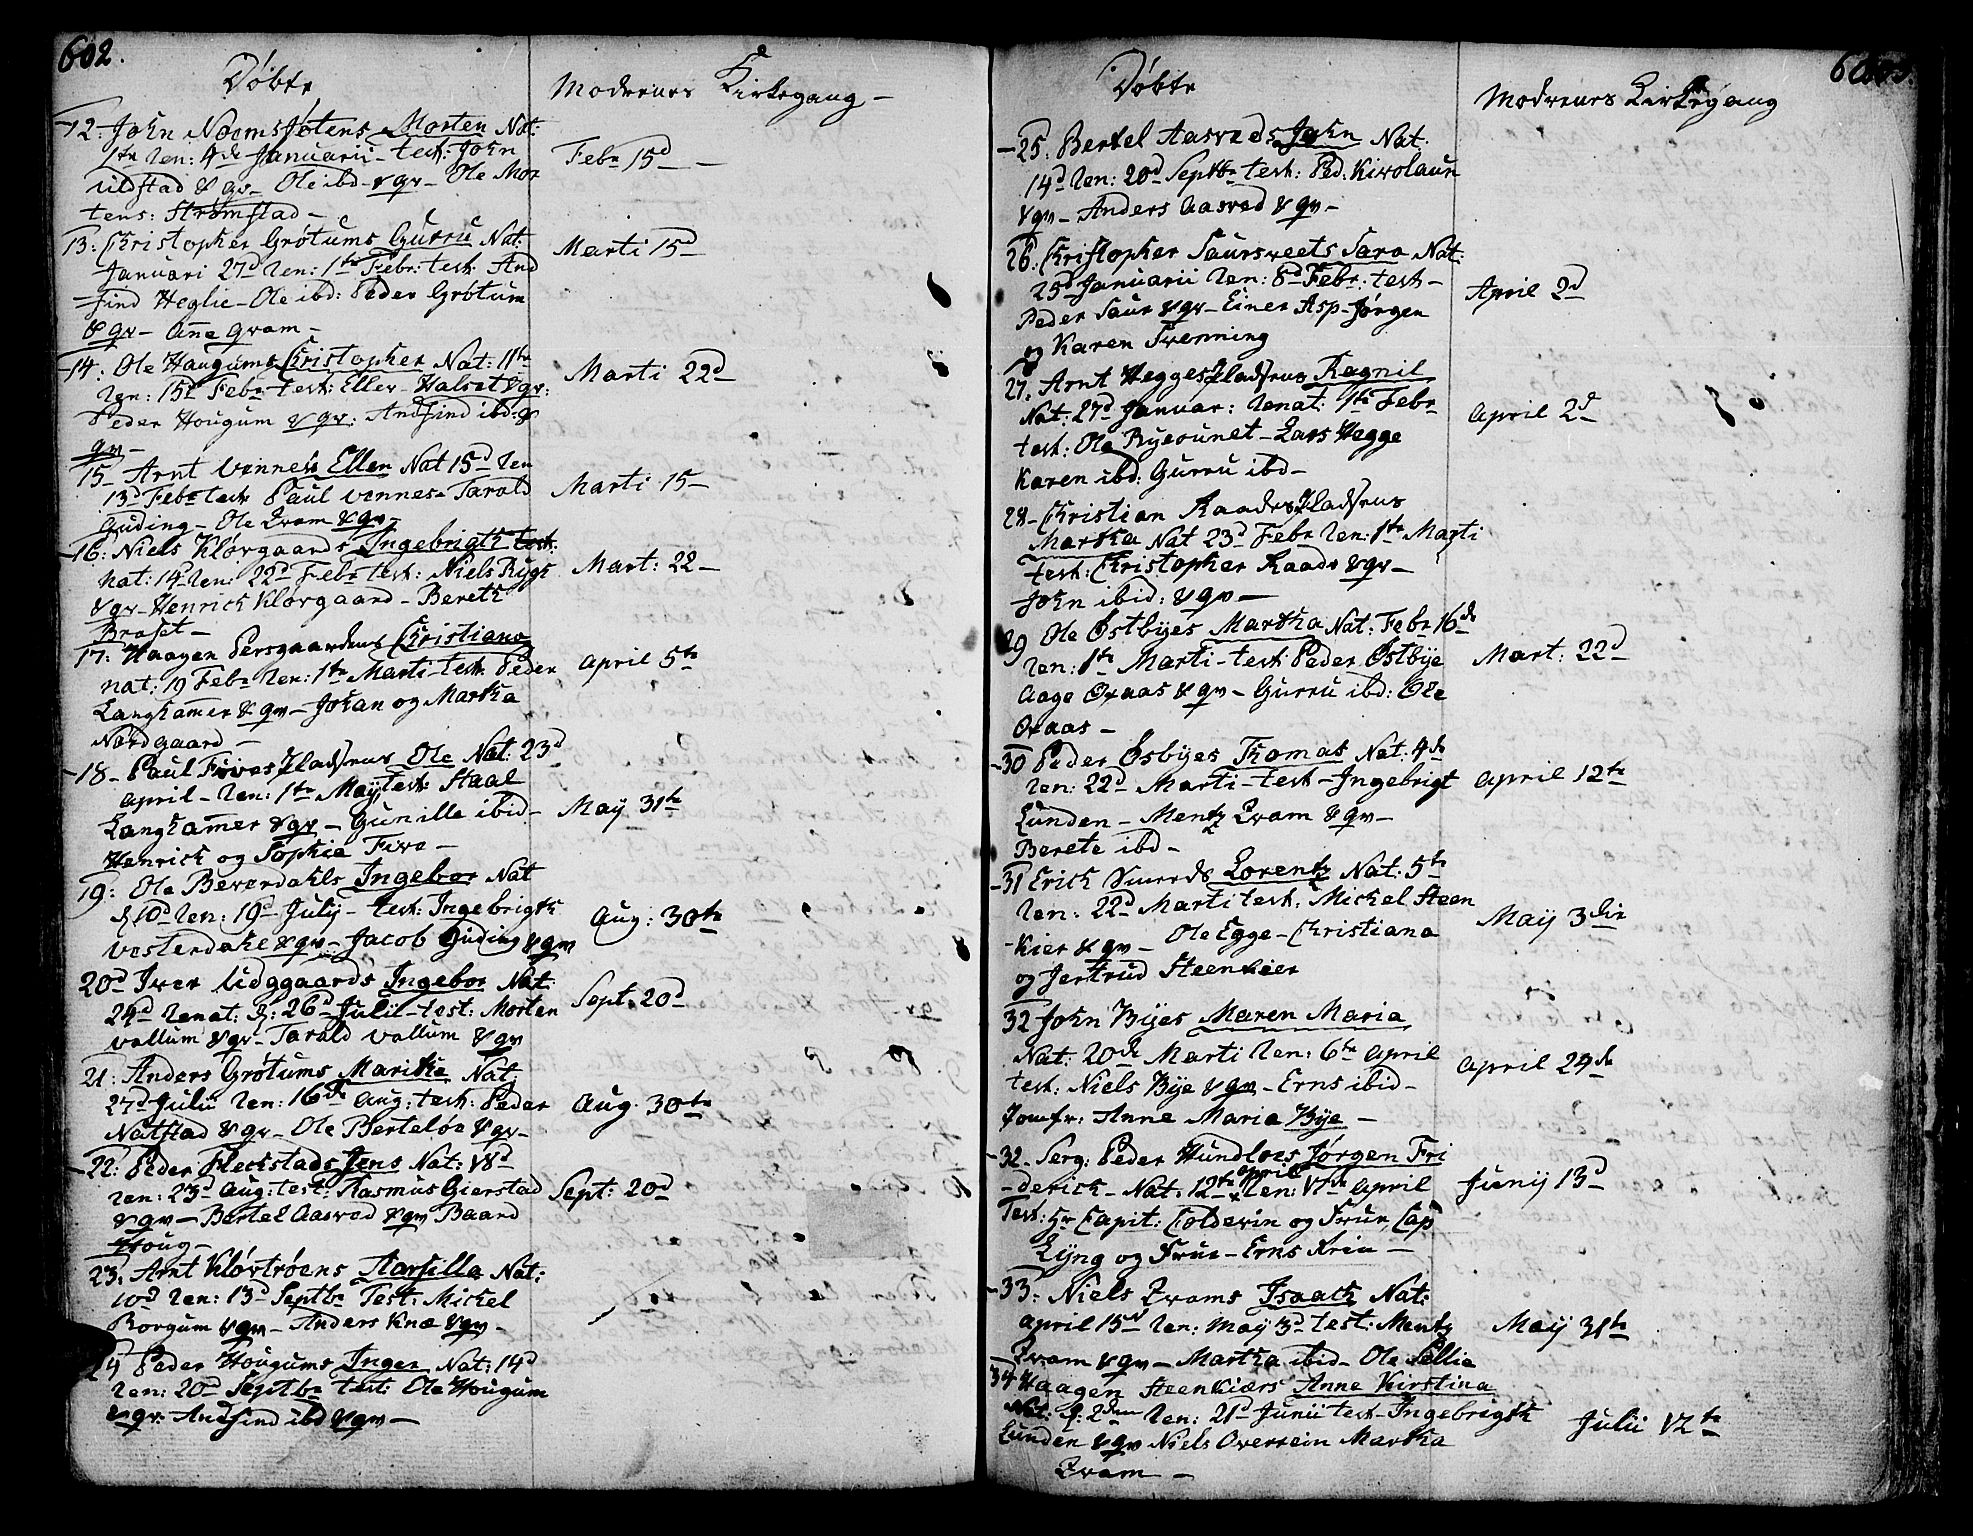 602.
Døbte
Modrenes Kirkegang –
12: John Noems Jøtens Morten Nat:
1te Ren: 4de Januarii – test: John
Uldstad & qv – Ole ibd – & qv – Ole Mor
tens: Strømstad –
Febr 15d –
13: Christopher Grøtums Gurru Nat:
Januari 27d Ren: 1te Febr: test: And
find Heglie – Ole ibd: Peder Grøtum
& qv – Anne qvam –
Marti 15d
14. Ole Haugums Christopher Nat: 11te
Ren: 15d Febr – test: Eller – Halset & qv:
Peder Hougum & qv: Andfind ibd: &
qv –
Marti 22d
15 – Arnt Vennes Ellen Nat 15d Ren
13d Febr test Paul Vennes – Tarald
Guding – Ole Qvam & qv –
Marti 15 –
16: Niels Klørgaards Ingebrigth test:
Nat: 14d Ren: 22d Febr test: Niels Ryge
& qv – Henrich Klørgaard – Bereth
Braset –
Mart: 22 –
17: Haagen Persgaardens Christiana
nat: 19 Febr Ren: 1te Marti – test: Peder
Langhamer & qv – Johan og Martha
Nordgaard –
April 5te
18 – Paul Fives Pladsens Ole Nat: 23d
April – Ren: 1te Maÿ, test: Staal
Langhamer & qv – Gunille ibid –
Henrich og Sophie Five –
Maÿ 31te
19: Ole Beverdahls Ingebor Nat
d 10d Ren: 19d Julÿ – test: Ingebrigth
Vesterdahl & qv – Jacob Guding & qv
Aug: 30te
20d Iver Udggaards Ingebor Nat:
24d Renat: d: 26d Julii – test: Morten
Vollum & qv – Tarald Vollum & qv
Sept. 20d
21: Anders Grøtums Marithe Nat:
27d Julii Ren: 16de Aug: test: Peder
Natstad & qv – Ole Berteløe & qv –
Aug 30te
22: Peder Fleckstads Jens Nat: 18d
Ren: 23d Aug: test: Rasmus Gierstad
& qv – Bertel Aasved & qv Baard
Houg –
Sept: 20d
23: Arnt Kløvrøens Aarsilla Nat:
10d Ren: 13d Septbr Test: Michel
Rorgum & qv – Anders Knæ & qv –
24 Peder Hougums Inger Nat: 14d
Ren: 20d Septbr test: Ole Hougum
& qv: Andfind ibd & qv –
Døbte
Modrenes Kirkegang
25: Bertel Aasveds John Nat:
14d Ren: 20d Septbr test: Ped: Kirolaun
& qv – Anders Aasved & qv –
26. Christopher Saursveets Sara Nat:
25d Januarii Ren: 8d Febr: test –
Peder Saur & qv – Einer Asp – Jørgen
og Karen Svenning
April 2d
27. Arnt Hegges Pladsens Ragnil
Nat: 27d Januar: Renat: 1te Febr
test: Ole Ryeounet – Lars Hegge
Karen ibd: Gurru ibd –
April 2d
28 – Christian Raades Pladsens
Martha Nat 23d Febr Ren: 1te Marti
test: Christopher Raade & qv –
John ibid: & qv –
29 Ole Østbÿes Martha Nat: Febr 16de
Ren: 1te Marti – test Peder Østbÿe
Aage Oxaas & qv – Gurru ibd: Ole
Oxaas –
Mart: 22d
30 Peder Øsbÿes Thomas Nat: 4de
Ren: 22d Marti – test – Ingebrigt
Lunden – Mentz Qvam & qv –
Berete ibd –
April 12te
31 Erich Smeeds Lorentz Nat: 5te
Ren: 22d Marti test: Michel Steen
Kier & qv – Ole Egge – Christiana
og Jertrud Steenkier
Maÿ 3die
32 John Bÿes Maren Maria
Nat: 20de Marti Ren: 6te April
test: Niels Bÿe & qv – Erns ibid –
Jomfr: Anne Maria Bÿe –
April 24de
32 – Serg: Peder Hundloes Jørgen Fri
derich – Nat: 12te April Ren: 17de April
Test: Hr Capit: Coldevin og Frue, Cap
Lÿng og Frue – Erns Krein –
Junÿ 13d
33. Niels Qvams Isaach Nat:
April 15d Ren: Maÿ 3d test: Mentz
Qvam & qv – Martha ibid – Ole Sellie
Maÿ 31te
34 Haagen Steenkiers Anne Kirstina
Nat: d: 2den Ren: 21d Junii test – Ingebrigth
Lunden & qv Niels Overrein Martha
Qvam –
Julii 12te